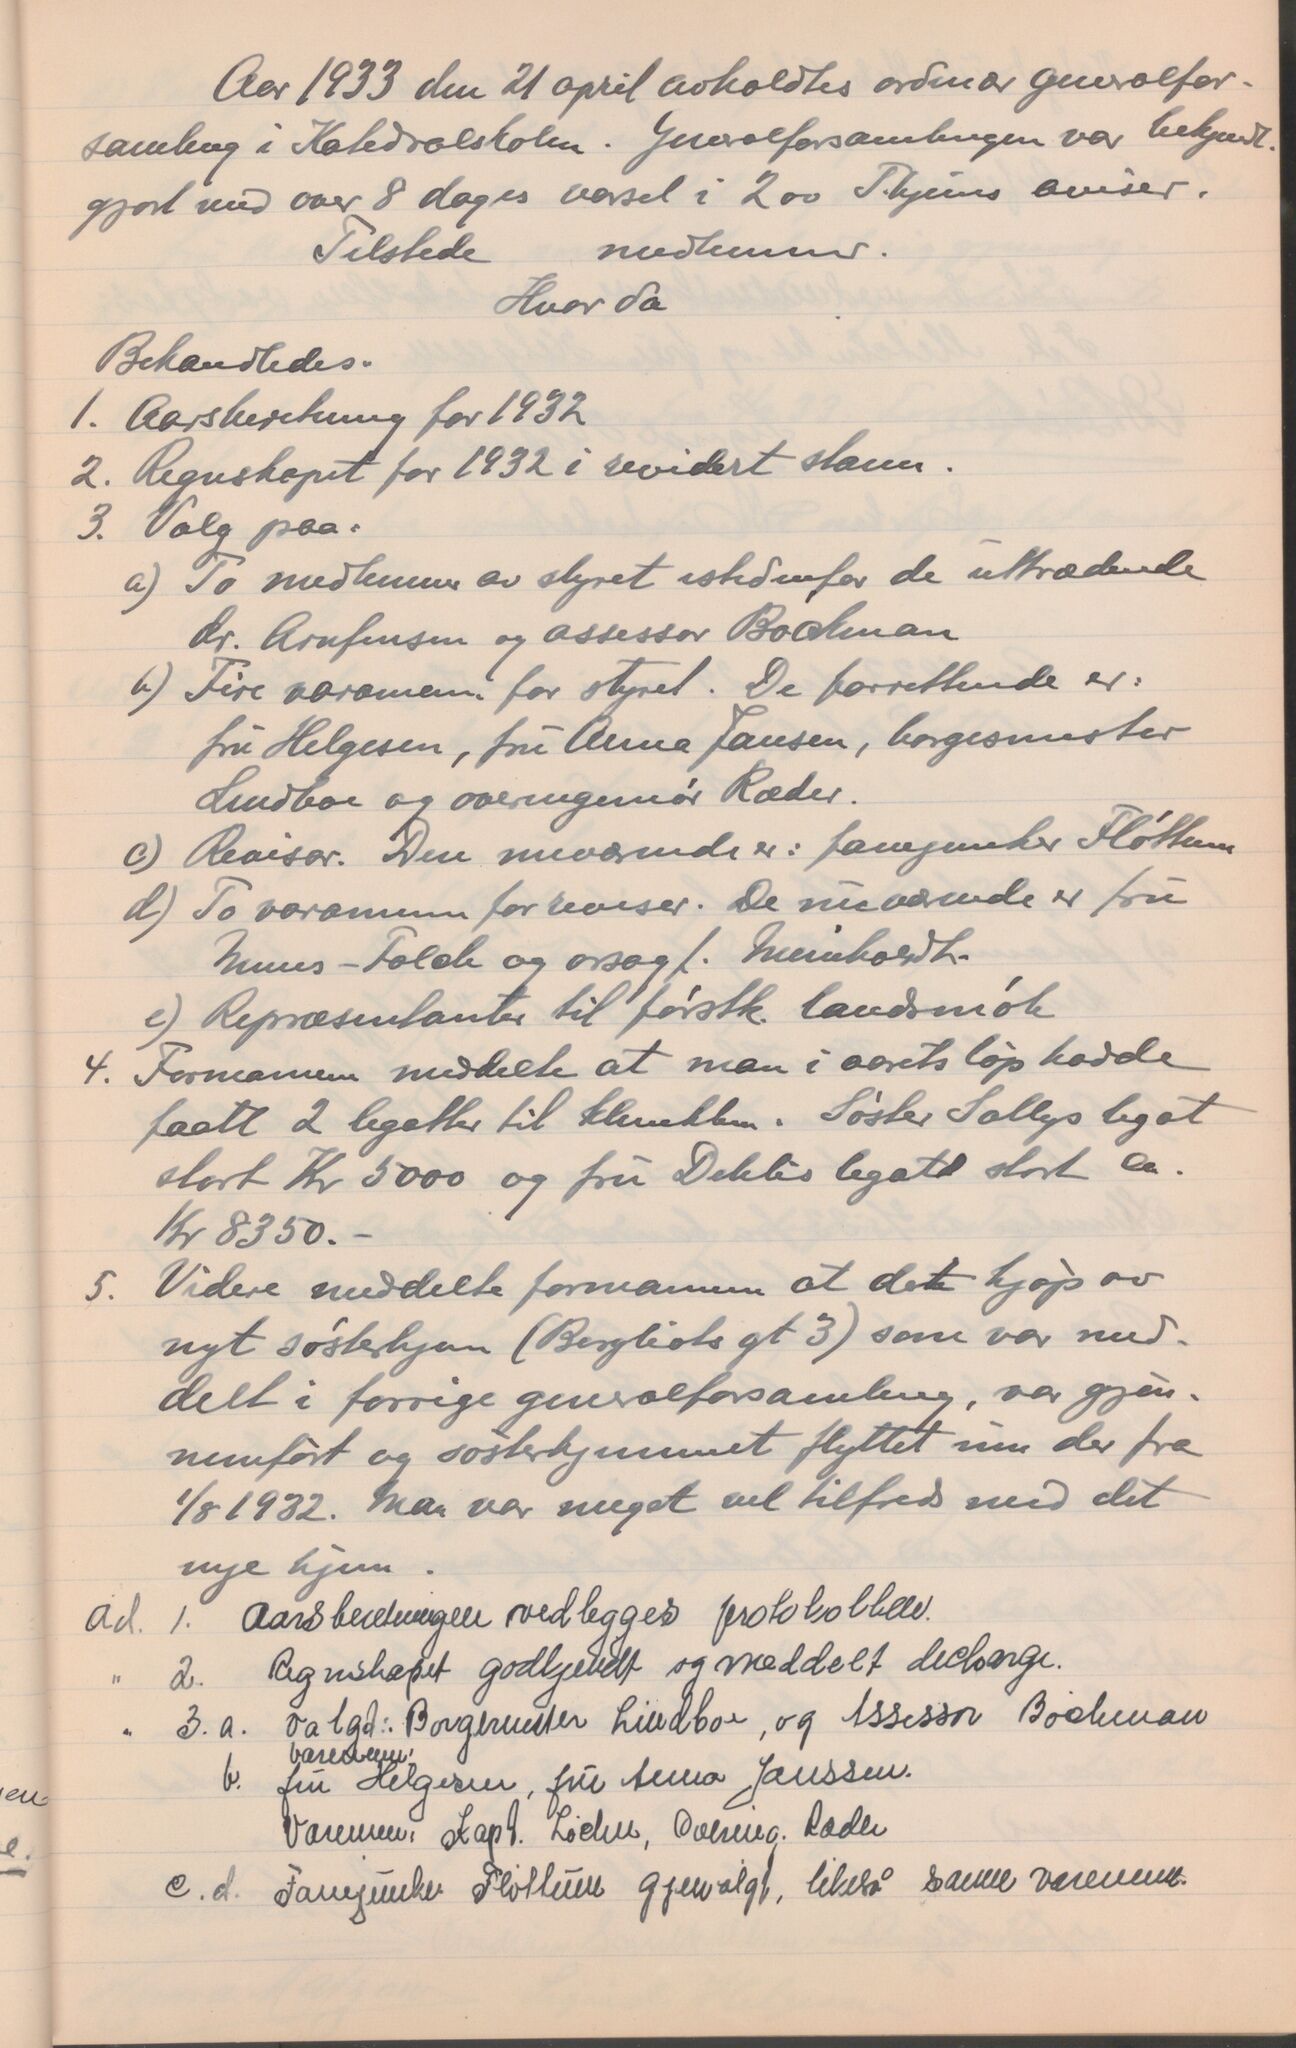 Aar 1933 den 21 april avholdtes ordinær generalfor-
samling i Katedralskolen. Generalforsamlingen var bekjendt-
gjort med over 8 dages varsel i 2 Thjems aviser.
Tilstede medlemmer.
Hvor da
Behandledes.
1. Aarsberetning for 1932
2. Regnskapet for 1932 i revidert stann.
3. Valg paa.
a) To medlemmer av styret istedenfor de uttrædende
dr. Arnfinsen og assessor Bockman
b) Fire varamenn for styret. De forrettende er:
fru Helgesen, fru Anna Jansen, borgesmester
Lindboe og overingeniør Ræder.
c) Revisor. Den nuværende er: fanejunker Fløttum
d) To varamenn for reviser. De nuværende er fru
Muus-Falck og orsagf. Meinhardt.
e) Repræsentanter til førstk. landsmøte
4. Formannen meddelte at man i aarets løp hadde
faatt 2 legatter til klinikken. Søster Sallys legat
stort Kr 5000 og fru Dehlis legatt stort ca.
Kr 8350.-
5. Videre meddelte formannen at dette kjøp av
nyt søsterhjem (Bergliots gt 3) som var med-
delt i forrige generalforsamling, var gjen-
nemført og søsterhjemmet flyttet inn der fra
1/8 1932. Man var meget vel tilfreds med det
nye hjem.
ad. 1. Aarsberetningen vedlegges protokollen.
" 2. Regnskapet godkjendt og meddelt decharge.
" 3. a. Valgt: Borgermester Lindboe, og Assessor Bockman
varamenn:
b. fru Helgesen, fru Anna Janssen.
Varemenn: Kapt. Lochen, Overing. Ræder
c. d. Fanejunker Fløttum gjenvalgt, likeså samme varemenn.
en-
e.